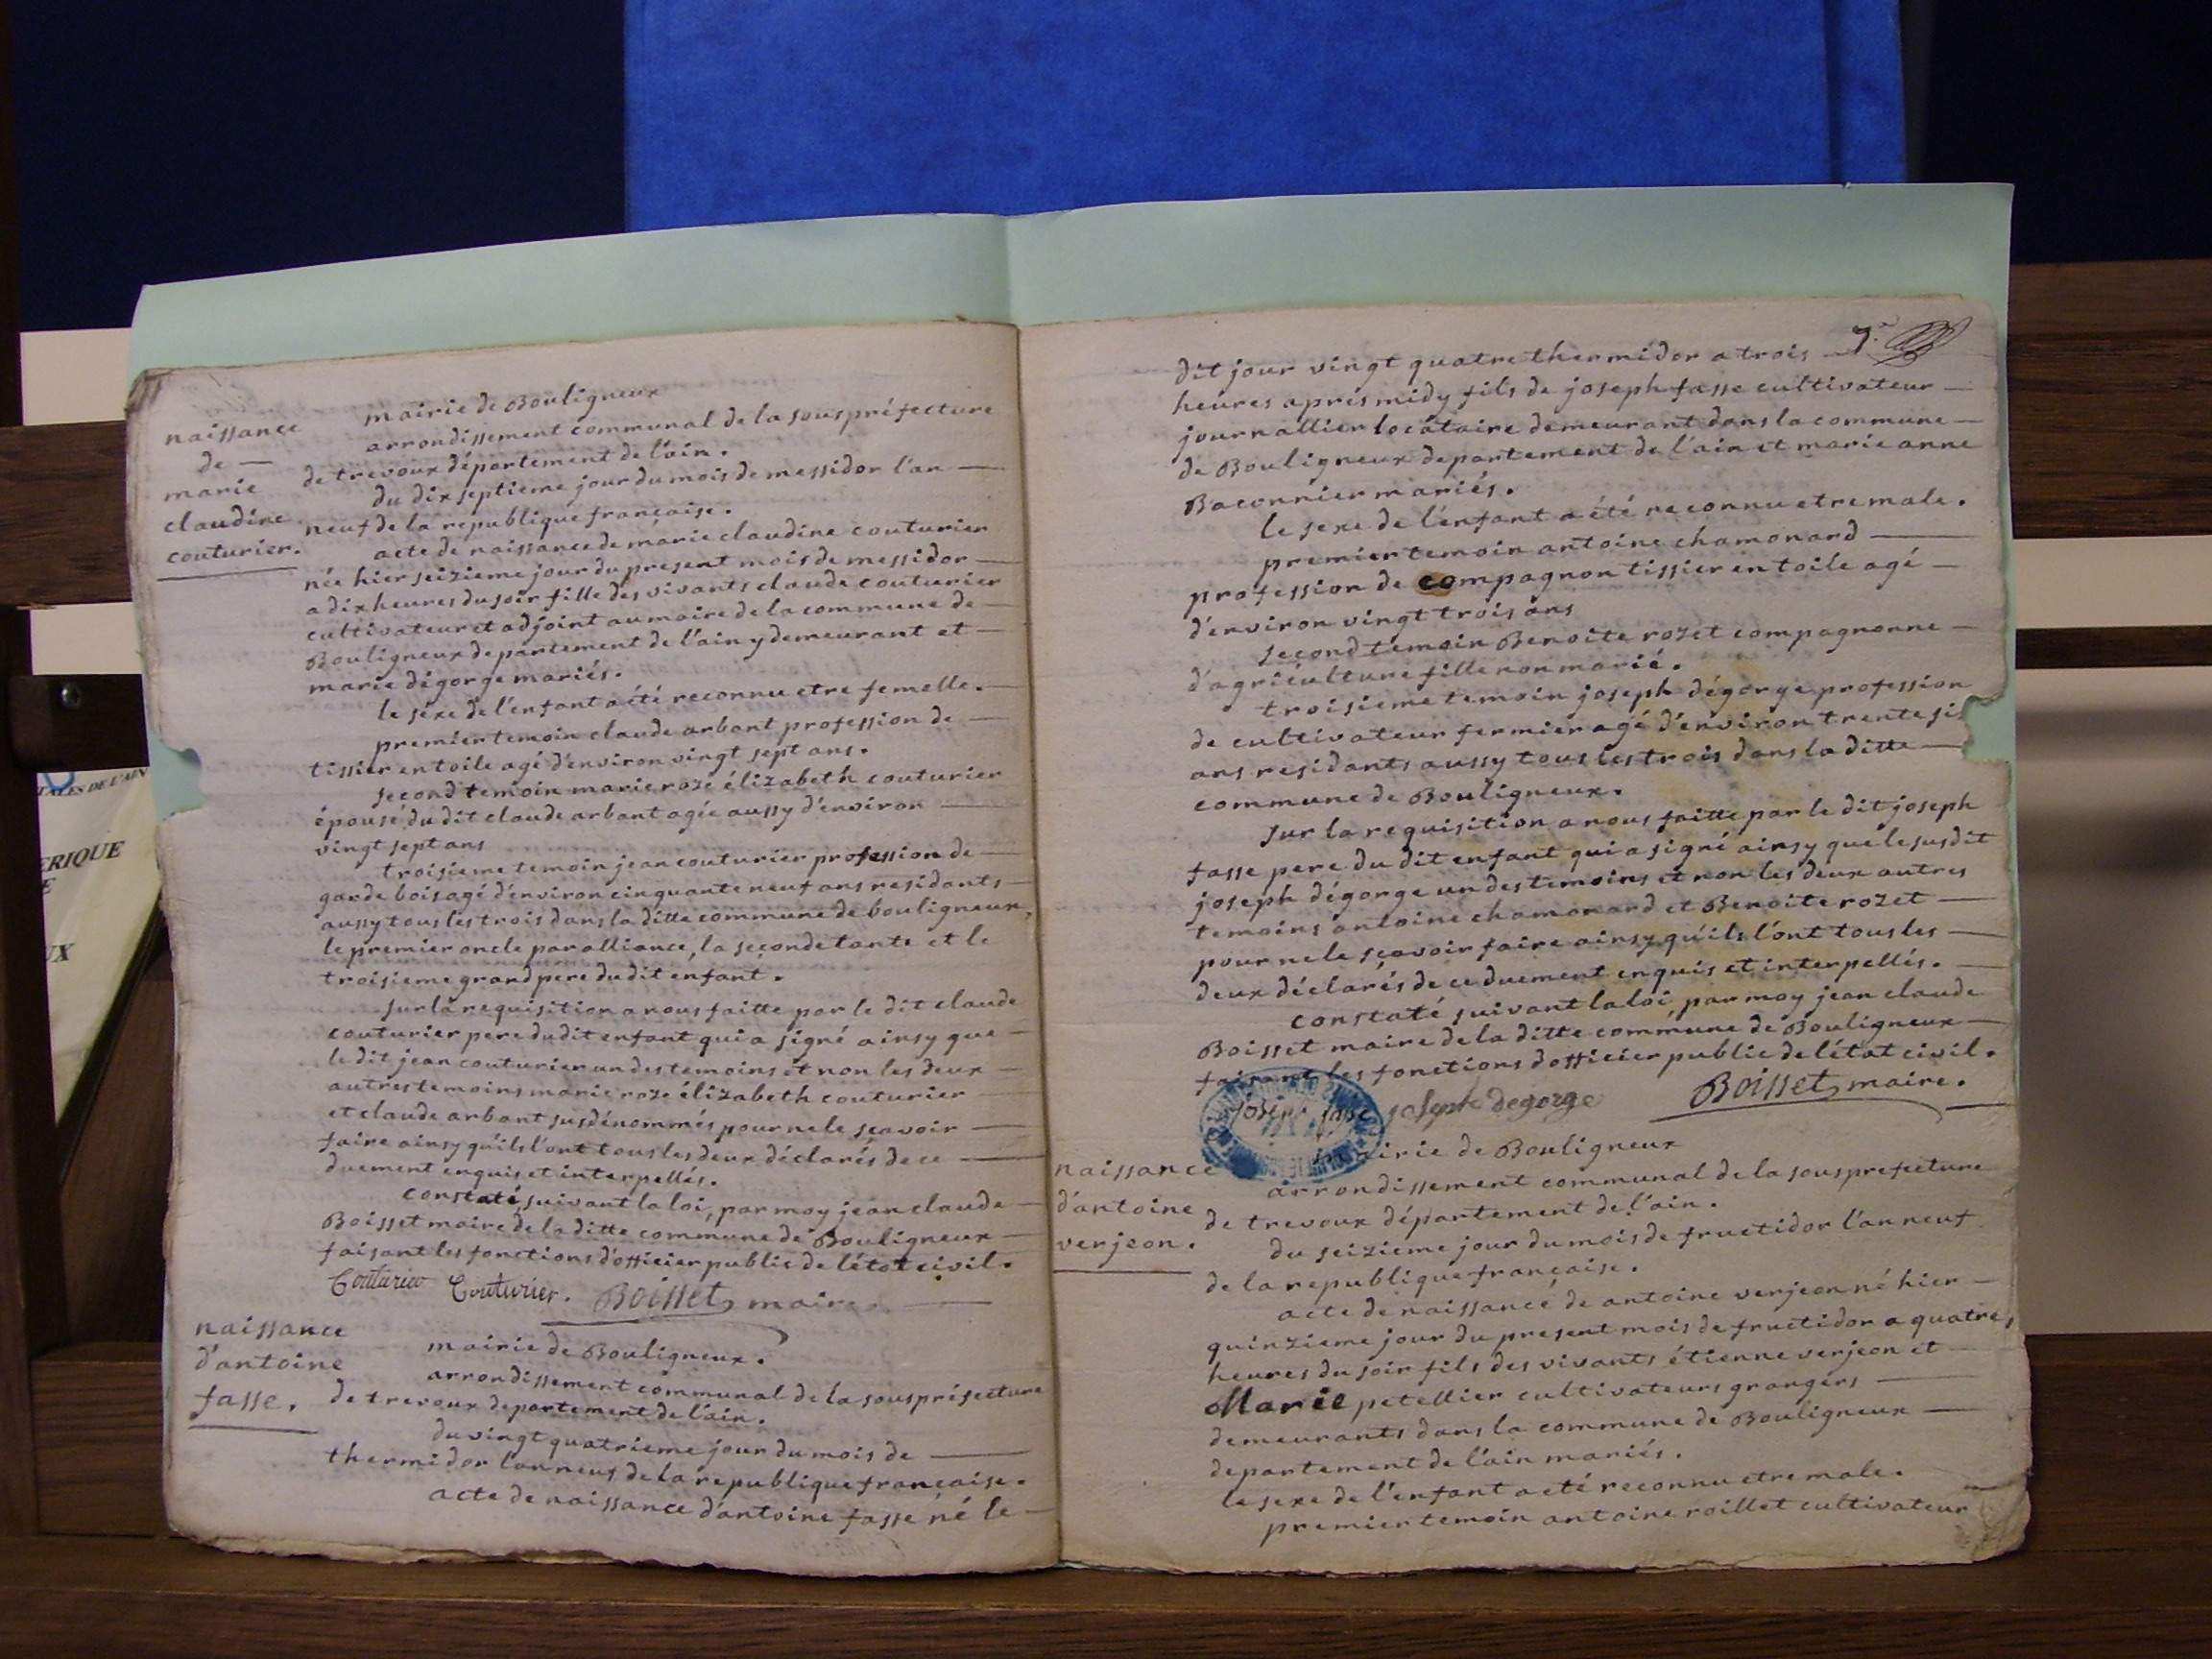 naissance
de —
marie
claudine
couturier.
mairie de Bouligneux
arrondissement communal de la souspréfecture
de trevoux département de l'ain.
du dix septieme jour du mois de messidor l'an —
neuf de la republique française.
acte de naissance de marie claudine couturier
née hier seizieme jour du present mois de messidor —
a dix heures du soir fille des vivants claude couturier
cultivateur et adjoint au maire de la commune de —
Bouligneux departement de l'ain y demeurant et —
marie dégorge mariés.
le sexe de l'enfant a été reconnu etre femelle. —
premier temoin claude arbant profession de —
tissier en toile agé d'environ vingt sept ans.
second temoin marie roze élizabeth couturier
épouse du dit claude arbant agée aussy d'environ —
vingt sept ans
troisieme temoin jean couturier profession de —
garde bois agé d'environ cinquante neuf ans residants —
aussy tous les trois dans la ditte commune de bouligneux,
le premier oncle par alliance, la seconde tante et le
troisieme grand pere du dit enfant.
sur la requisition a nous faitte par le dit claude
couturier pere du dit enfant qui a signé ainsy que —
le dit jean couturier un des temoins et non les deux —
autres temoins marie roze élizabeth couturier —
et claude arbant susdénommés pour ne le sçavoir —
faire ainsy qu'ils l'ont tous les deux déclarés de ce —
duement enquis et interpellés.
constaté suivant la loi, par moy jean claude —
Boisset maire de la ditte commune de Bouligneux —
faisant les fonctions d'officier public de l'état civil.
Couturier Couturier. Boisset maire. —
naissance
d'antoine
fasse.
mairie de Bouligneux.
arrondissement communal de la souspréfecture
de trevoux departement de l'ain.
du vingt quatrieme jour du mois de —
thermidor l'an neuf de la republique française.
acte de naissance d'antoine fasse né le —
7.e
dit jour vingt quatre thermidor a trois —
heures après midy fils de joseph fasse cultivateur —
journallier locataire demeurant dans la commune —
de Bouligneux departement de l'ain et marie anne
Baconnier mariés.
le sexe de l'enfant a été reconnu etre male.
premier temoin antoine chamonard —
profession de compagnon tissier en toile agé —
d'environ vingt trois ans
second temoin Benoite rozet compagnonne —
d'agriculture fille non marié.
troisieme temoin joseph dégorge profession
de cultivateur fermier agé d'environ trente six
ans residants aussy tous les trois dans la ditte —
commune de Bouligneux.
sur la requisition a nous faitte par le dit joseph
fasse pere du dit enfant qui a signé ainsy que le susdit
joseph dégorge un des temoins et non les deux autres
temoins antoine chamonard et Benoite rozet —
pour ne le sçavoir faire ainsy qu'ils l'ont tous les —
deux déclarés de ce duement enquis et interpellés. —
constaté suivant la loi, par moy jean claude
Boisset maire de la ditte commune de Bouligneux —
faisant les fonctions d'officier public de l'état civil.
joseph fasse joseph degorge Boisset maire. —
naissance
d'antoine
verjeon.
mairie de Bouligneux
arrondissement communal de la sousprefecture
de trevoux département de l'ain.
du seizieme jour du mois de fructidor l'an neuf
de la republique française.
acte de naissance de antoine verjeon né hier —
quinzieme jour du present mois de fructidor a quatre
heures du soir fils des vivants étienne verjeon et —
Marie petellier cultivateurs grangers —
demeurants dans la commune de Bouligneux —
departement de l'ain mariés.
le sexe de l'enfant a eté reconnu etre male.
premier temoin antoine roillet cultivateur
ERIQUE
E
UX